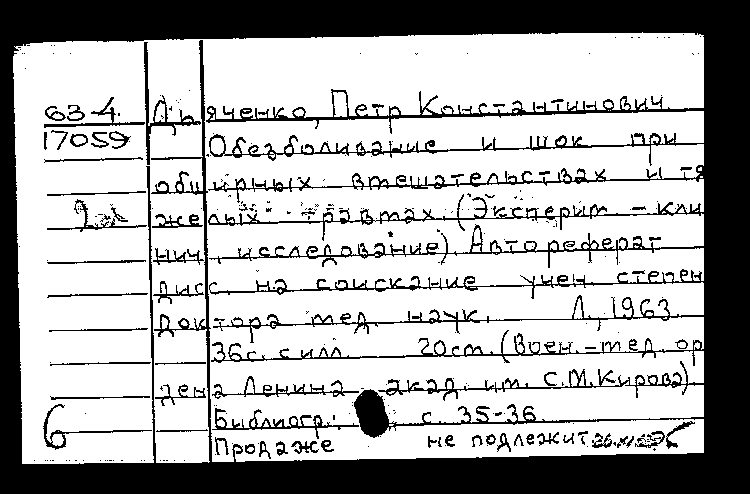 63-4 Дьяченко, Петр Константинович
17059 Обезболивание и шок при
обширных вмешательствах и тя
желых травмах. (Эксперим. - кли
нич. исследование). Автореферат
дисс. на соискание учен. степен
доктора мед. наук. Л., 1963.
36с. с илл. 20см. (Воен.-мед. ор
дена Ленина акад. им. С.М.Кирова).
Библиогр.: с. 35-36.
6 Продаже не подлежит